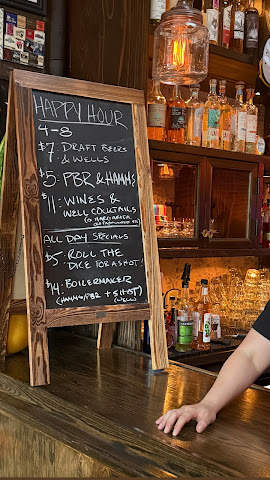 HAPPY HOUR
4-8
$7: DRAFT BEERS
& WELLS
$5: PBR & HAMMS
$11: WINES &
WELL COCKTAILS
ALL DAY SPECIALS
$5: ROLL THE
DICE FOR A SHOT!
$14: BOILERMAKER
(HAMMS/PBR + SHOT)
(WELL)